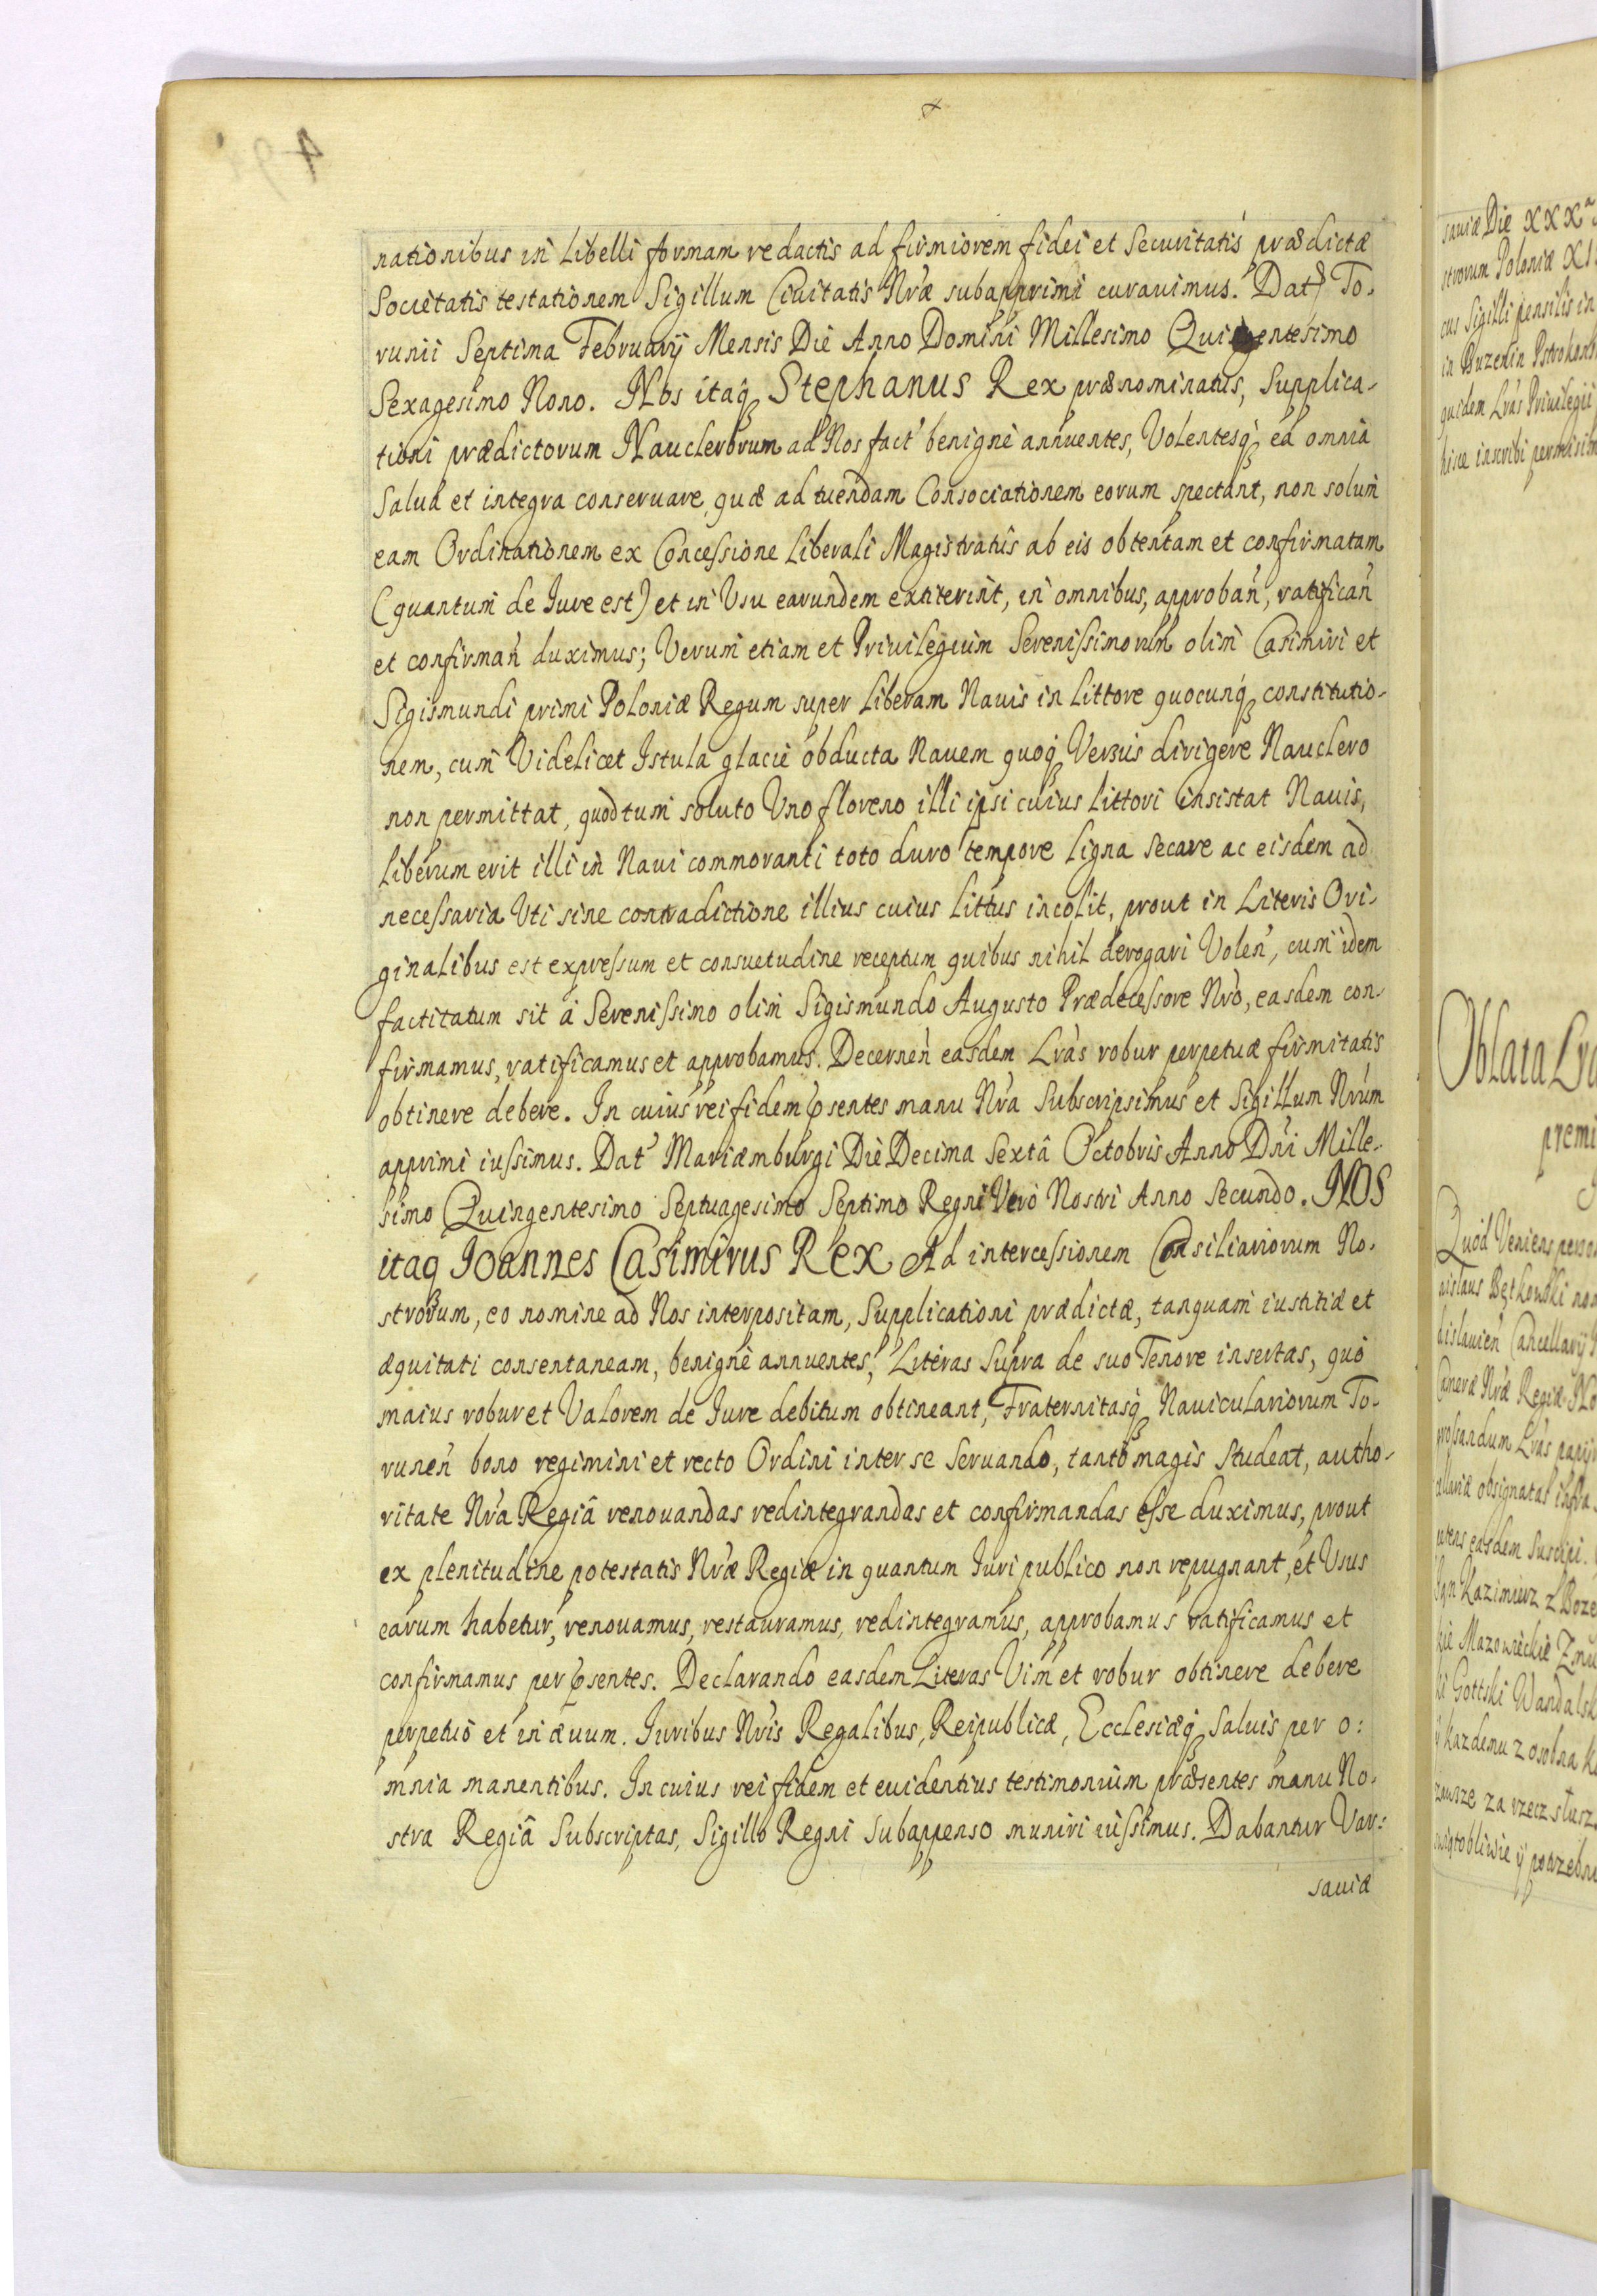 nationibus in Libelli formam redactis ad firmiorem fidei et Securitatis prædictæ
Societatis testationem Sigillum Ciuitatis Nræ subapprimi curauimus. Dat To-
runii Septima Februarij Mensis Die Anno Domini Millesimo Quingentesimo
Sexagesimo Nono. Nos itaq Stephanus Rex prænominatus, Supplica-
tioni prædictorum Nauclerorum ad Nos fact' benigne annuentes, Volentesq ea omnia
Salua et integra conseruare, quæ ad tuendam Consociationem eorum spectant, non solum
eam Ordinationem ex Concessione liberali Magistratus ab eis obtentam et confirmatam
(quantum de Iure est) et in Vsu earundem extiterint, in omnibus, approban', ratifican'
et confirman' duximus; Verum etiam et Priuilegium Serenissimorum olim Casimiri et
Sigismundi primi Poloniæ Regum super liberam Nauis in littore quocunq constitutio-
nem, cum Videlicet Istula glacie obducta Nauem quoq Versus dirigere Nauclero
non permittat, quod tum soluto Vno floreno illi ipsi cuius littori insistat Nauis,
liberum erit illi in Naui commoranti toto duro tempore ligna secare ac eisdem ad
necessaria Vti sine contradictione illius cuius littus incolit, prout in Literis Ori-
ginalibus est expressum et consuetudine receptum quibus nihil derogari Volen', cum idem
factitatum sit à Serenissimo olim Sigismundo Augusto Prædecessore Nro, easdem con-
firmamus, ratificamus et approbamus. Decernen' easdem Lras robur perpetuæ firmitatis
obtinere debere. In cuius rei fidem psentes manu Nra Subscripsimus et Sigillum Nrum
apprimi iussimus. Dat' Mariæmburgi Die Decima Sextâ Octobris Anno Dni Mille-
simo Quingentesimo Septuagesimo Septimo Regni Verò Nostri Anno Secundo. NOS
itaq Ioannes Casimirus Rex Ad intercessionem Consiliariorum No-
strorum, eo nomine ad Nos interpositam, Supplicationi prædictæ, tanquam iustitiæ et
æquitati consentaneam, benignè annuentes, Literas Supra de suo Tenore insertas, quò
maius robur et Valorem de Iure debitum obtineant, Fraternitasq Nauiculariorum To-
runen' bono regimini et recto Ordini inter se Seruando, tantò magis Studeat, autho-
ritate Nra Regiâ renouandas redintegrandas et confirmandas esse duximus, prout
ex plenitudine potestatis Nræ Regiæ in quantum Iuri publico non repugnant, et Vsus
earum habetur, renouamus, restauramus, redintegramus, approbamus ratificamus et
confirmamus per psentes. Declarando easdem Literas Vim et robur obtinere debere
perpetuò et in æuum. Iuribus Nris Regalibus, Reipublicæ, Ecclesiæq Saluis per o:
mnia manentibus. In cuius rei fidem et euidentius testimonium præsentes manu No-
stra Regiâ Subscriptas, Sigillo Regni Subappenso muniri iussimus. Dabantur Var:
sauiæ
sauiæ Die XXX
strorum Poloniæ XI
cus Sigilli pensilis in
in Buzenin Pstrokons
quidem Lras Priuilegii
hisce inscribi permisim
Oblata Lra
premi
Quod Veniens perso
nislaus Bętkowski
dislauien' Cancellarij
Cameræ Nræ Regiæ No
Lras
obsignatas infra
easdem Suscipi
Kazimierz z Boże
Mazowieckie Żmu
Gottski Wandalsk
każdemu z osobna
zawsze za rzecz słusz